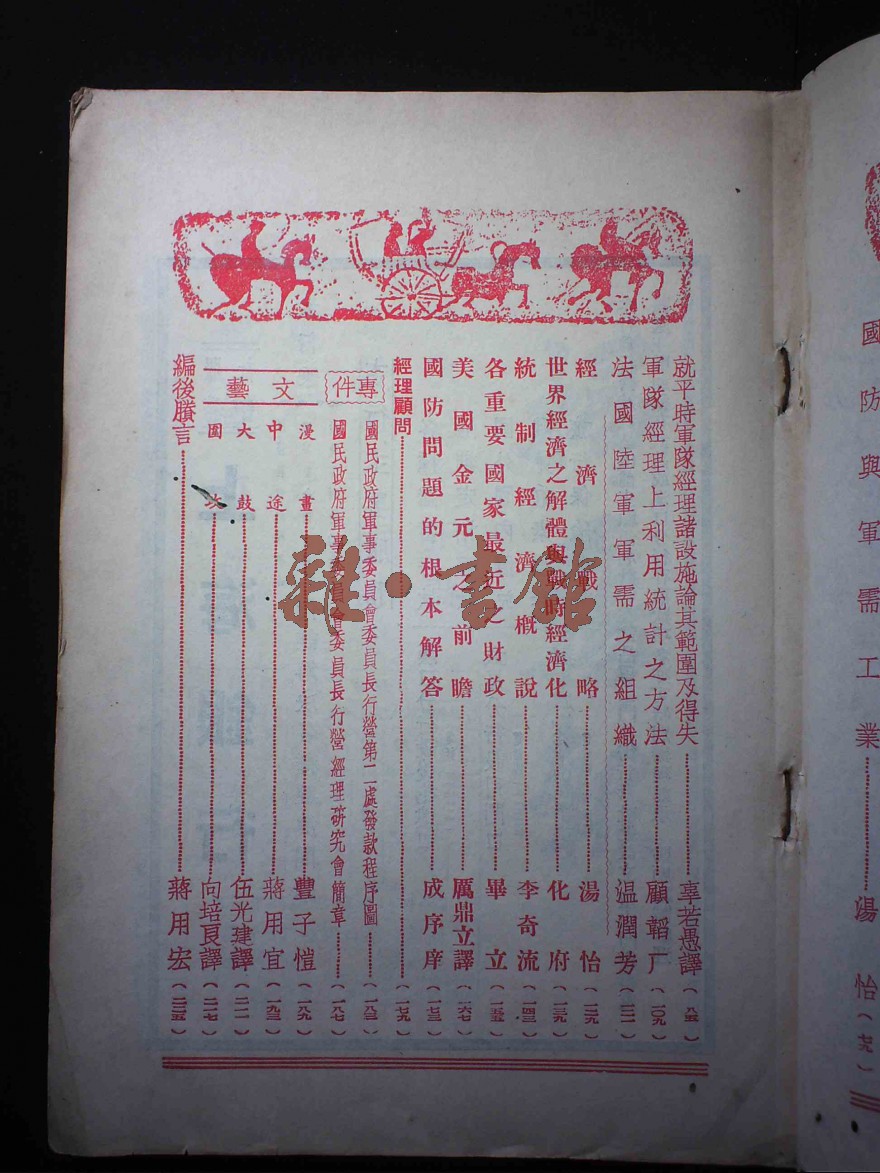 國防與軍需工業⋯⋯湯怡
就平時軍隊經理諸設施論其範圍及得失⋯⋯辜若愚譯(八五)
軍隊經理上利用統計之方法⋯⋯顧韜厂(一〇九)
法國陸軍軍需之組織⋯⋯温潤芳
經濟戰略⋯⋯湯怡(一二九)
世界經濟之解體與戰時經濟化⋯⋯化府(一三九)
統制經濟概說⋯⋯李奇流(一四三)
各重要國家最近之財政⋯⋯畢立(一五五)
美國金元之前瞻⋯⋯厲鼎立譯(一六七)
國防問題的根本解答⋯⋯成序庠(一七三)
經理顧問⋯⋯(一七九)
專件
國民政府軍事委員會委員長行營第二處發款程序圖⋯⋯(一八三)
國民政府軍事委員會委員長行營經理研究會簡章⋯⋯(一八七)
文藝
漫畫⋯⋯豐子愷(一八九)
中途⋯⋯蔣用宜(一九三)
大鼓⋯⋯伍光建譯(二一一)
圍攻⋯⋯向培良譯(二一七)
編後賸言⋯⋯蔣用宏(二三五)
雜·書館